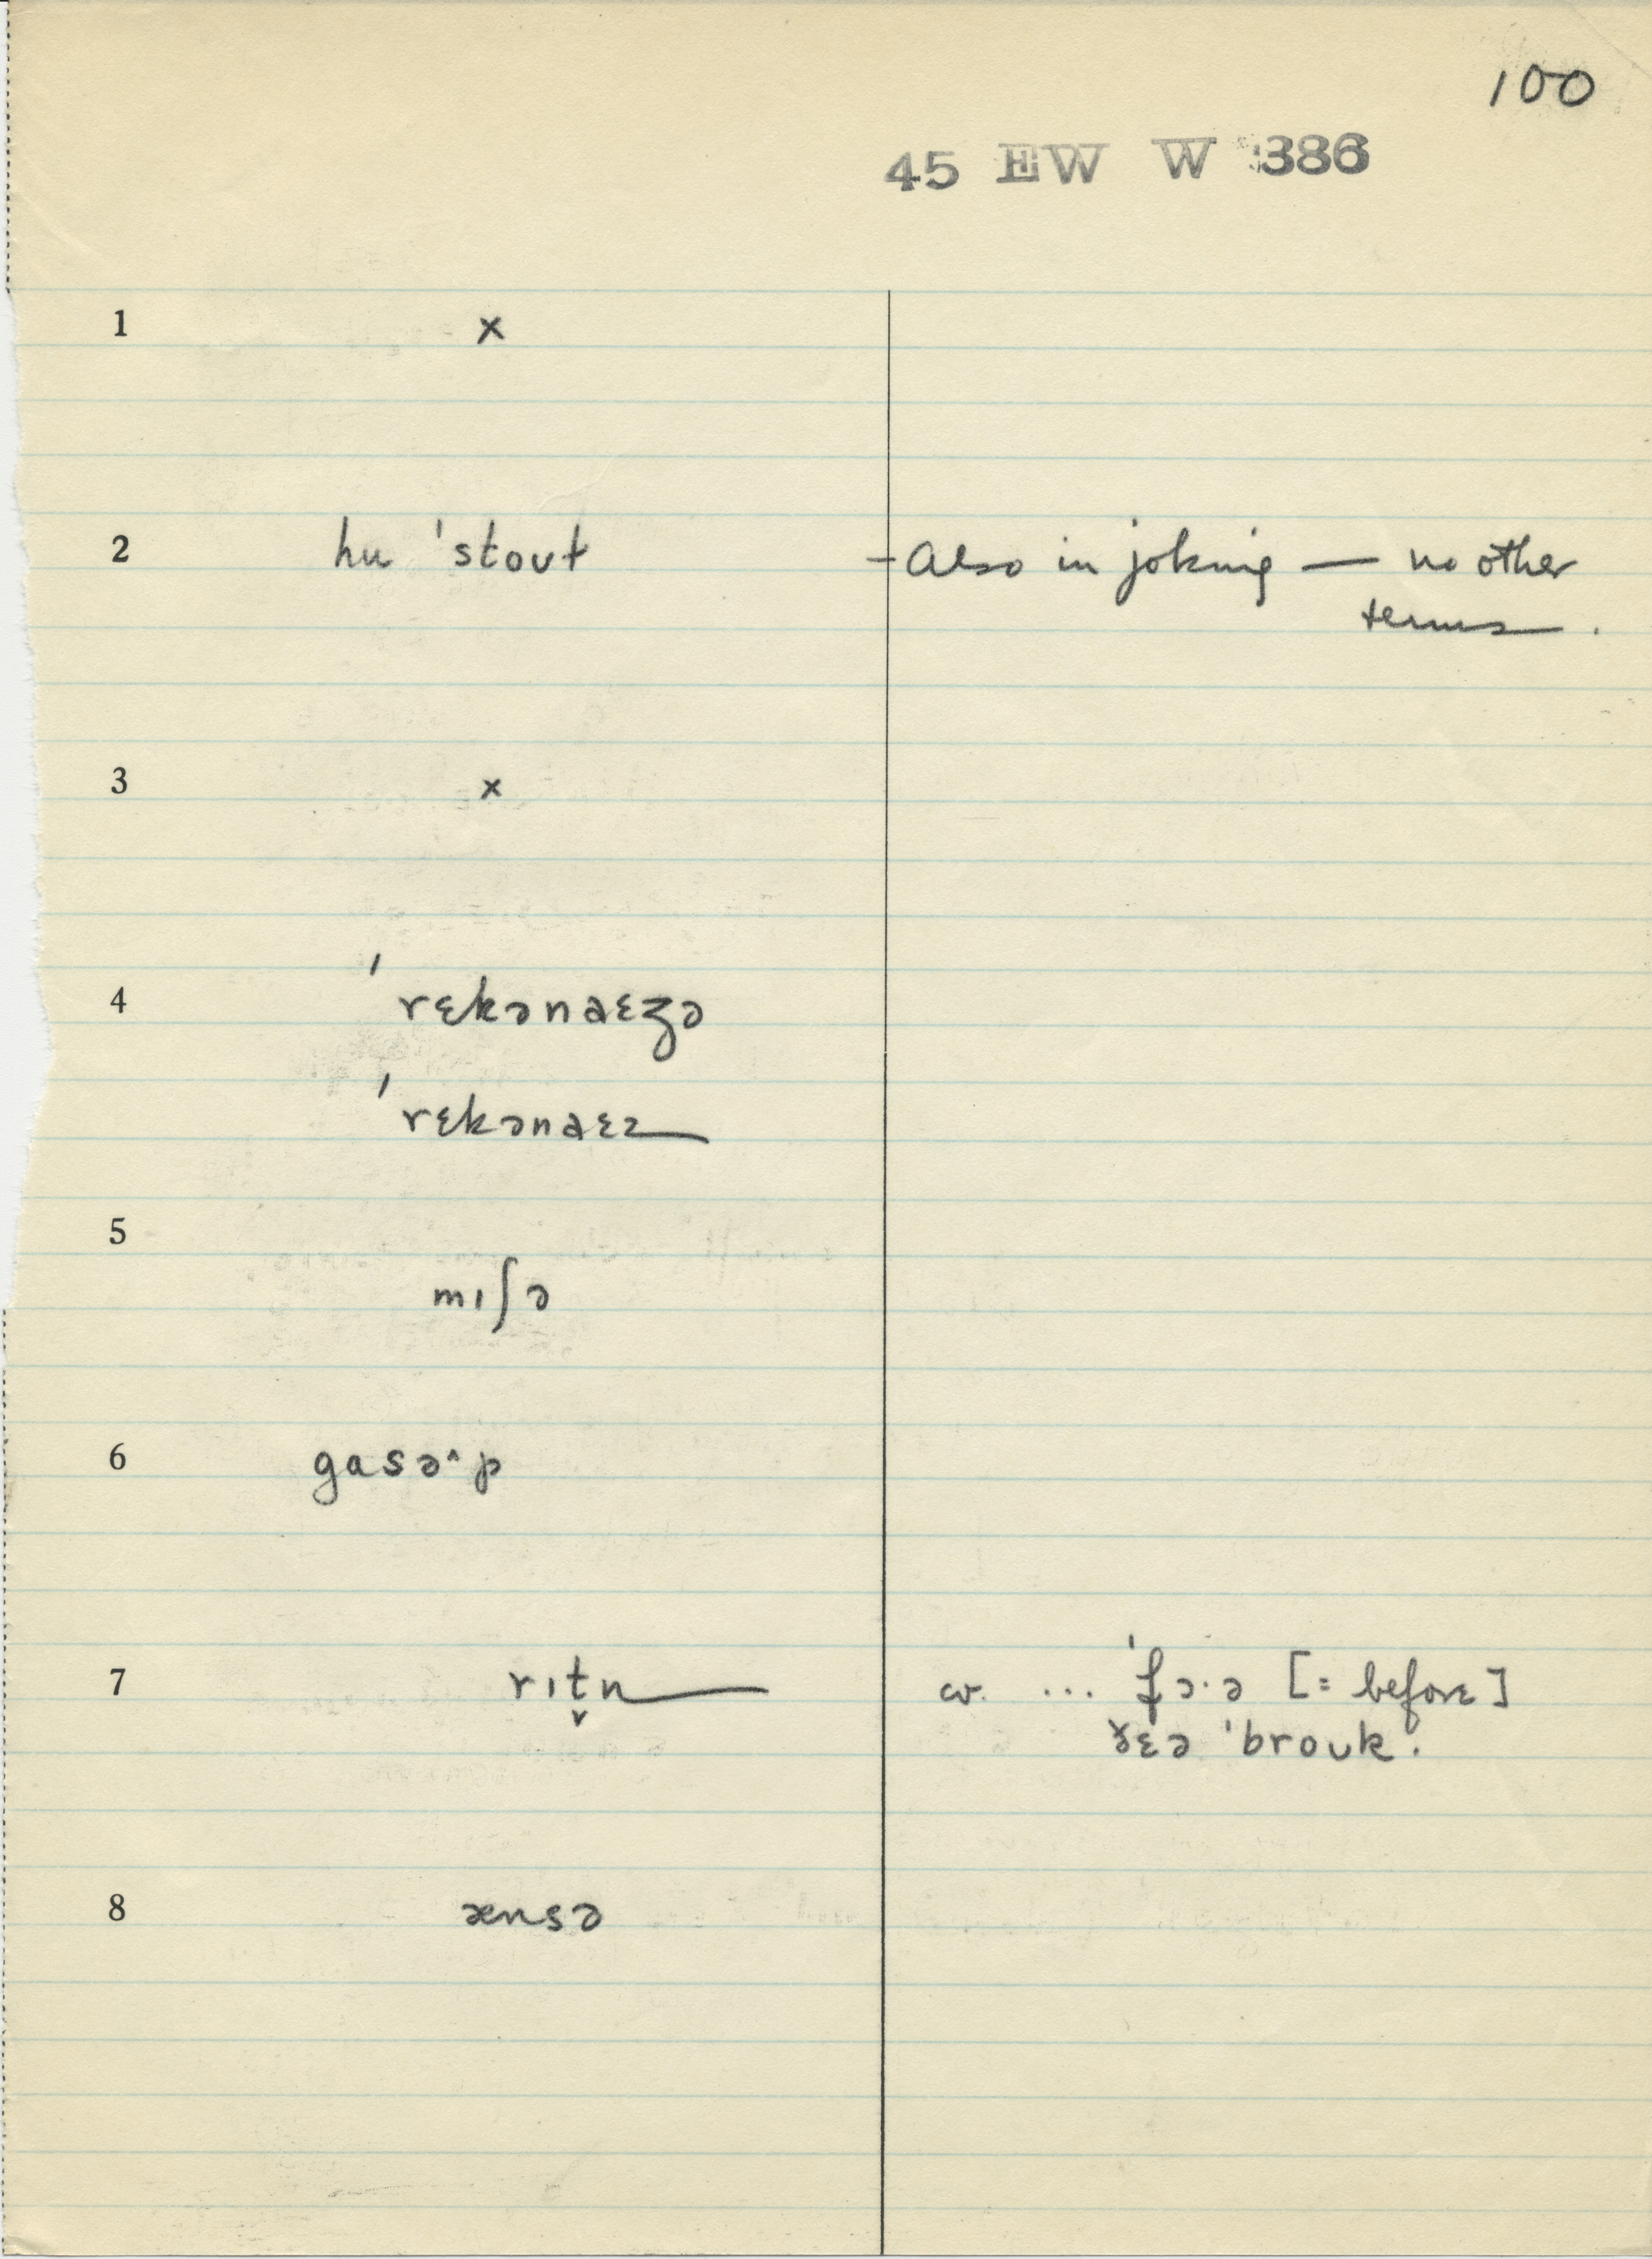 100
45 EW W 386
1 x
2 hu ˈstoʊt – Also in joking — no other
terms.
3 x
4 ˈrɛkənaɛʒə
ˈrɛkənaɛz
5 mɪʃə
6 gasə˄p
7 rɪt̬n cv. ... ˈfɔ·ə [= before]
ðɛə ˈbroʊk.
8 ænsə